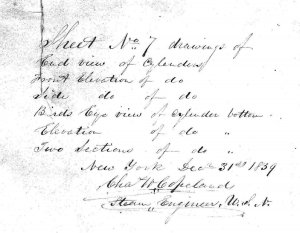 Sheet No 7 drawings of
End view of Cylenders
Front Elevation of do
Side do of do
Birds Eye view of Cylender bottom
Elevation of do "
Two Sections of do "
New York Decr 31st 1839
Chas W Copeland
Steam Engineer, U.S.N.